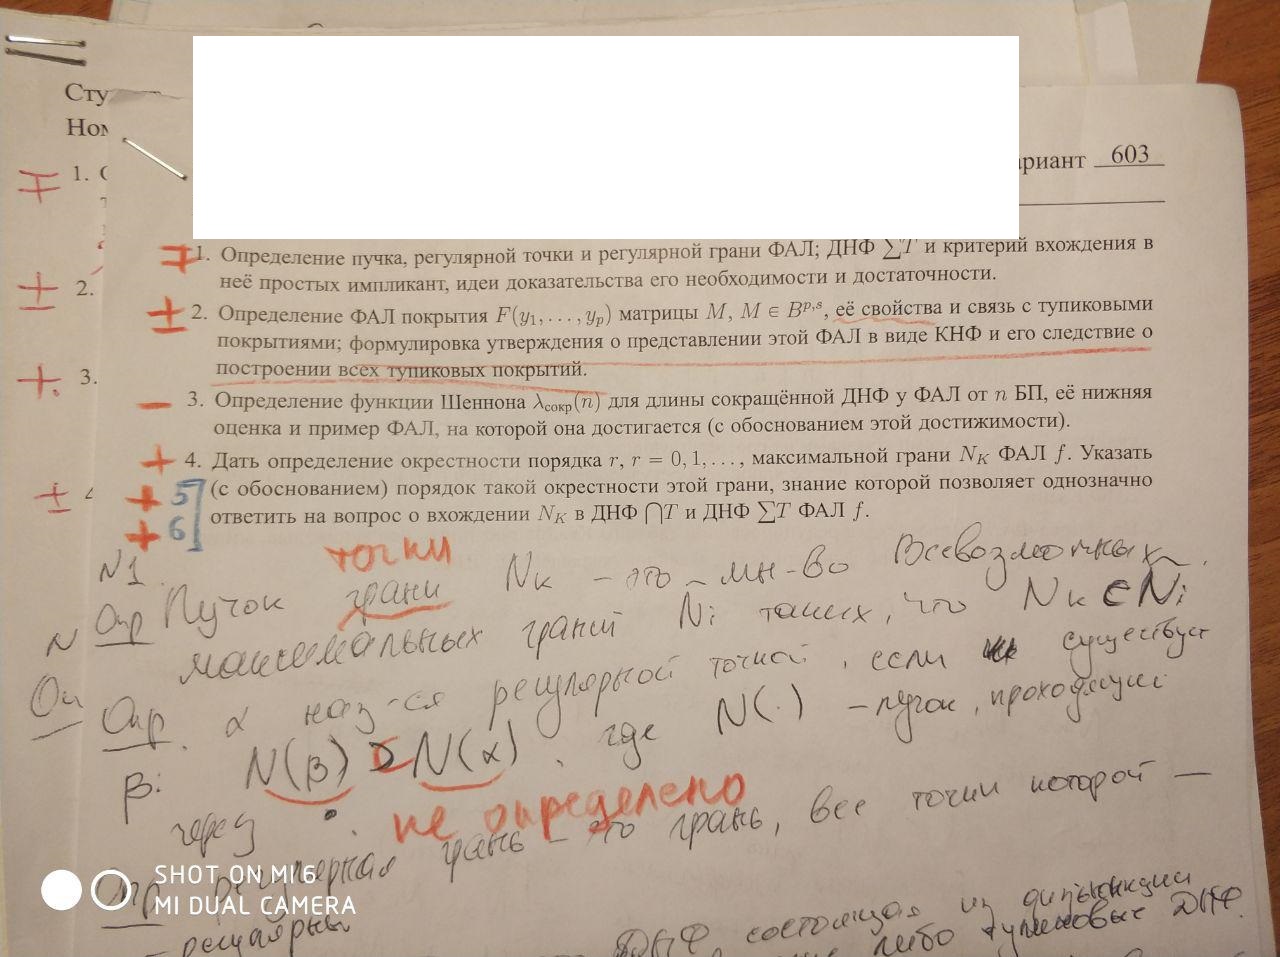 Сту
Ном
1.
2.
3.
4
вариант 603
1. Определение пучка, регулярной точки и регулярной грани ФАЛ; ДНФ ∑T и критерий вхождения в
неё простых импликант, идеи доказательства его необходимости и достаточности.
2. Определение ФАЛ покрытия F(y₁, . . . , yₚ) матрицы M, M ∈ Bᵖ,ˢ, её свойства и связь с тупиковыми
покрытиями; формулировка утверждения о представлении этой ФАЛ в виде КНФ и его следствие о
построении всех тупиковых покрытий.
3. Определение функции Шеннона λсокр(n) для длины сокращённой ДНФ у ФАЛ от n БП, её нижняя
оценка и пример ФАЛ, на которой она достигается (с обоснованием этой достижимости).
4. Дать определение окрестности порядка r, r = 0, 1, . . . , максимальной грани N_K ФАЛ f. Указать
5 (с обоснованием) порядок такой окрестности этой грани, знание которой позволяет однозначно
6 ответить на вопрос о вхождении N_K в ДНФ ⋂T и ДНФ ∑T ФАЛ f.
точки
N1.
Опр Пучок грани Nк - это мн-во всевозможных
максимальных граней Ni таких, что Nк ⊂ Ni
Опр. α наз-ся регулярной точкой, если существует
β: N(β) ⊃ N(α), где N(·) - пучок, проходящий
через ·. не определено
Опр регулярная грань - это грань, все точки которой —
- регулярны
SHOT ON MI 6
MI DUAL CAMERA
ДНФ, состоящая из дизъюнкции
либо тупиковые ДНФ.